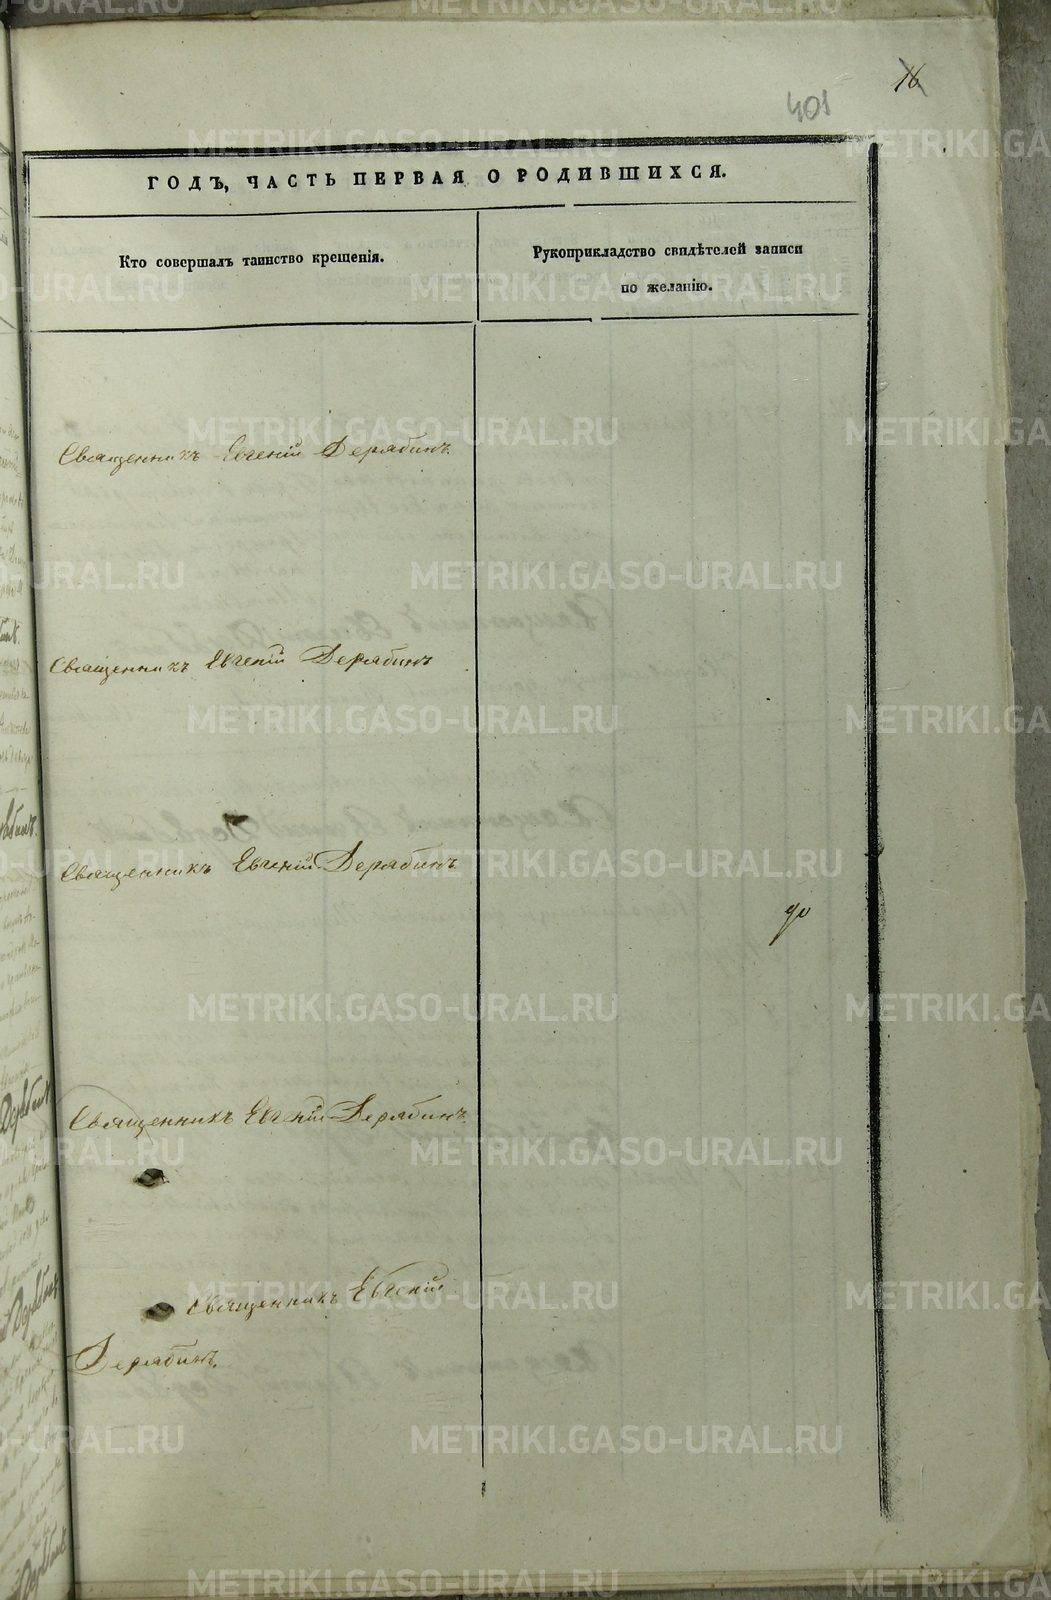 16
401
ГОДЪ, ЧАСТЬ ПЕРВАЯ О РОДИВШИХСЯ.
Кто совершалъ таинство крещенія.
Рукоприкладство свидѣтелей записи
по желанію.
Священникъ Евгеній Дерябинъ.
Священникъ Евгеній Дерябинъ
Священникъ Евгеній Дерябинъ
Священникъ Евгеній Дерябинъ.
Священникъ Евгеній
Дерябинъ.
METRIKI.GASO-URAL.RU